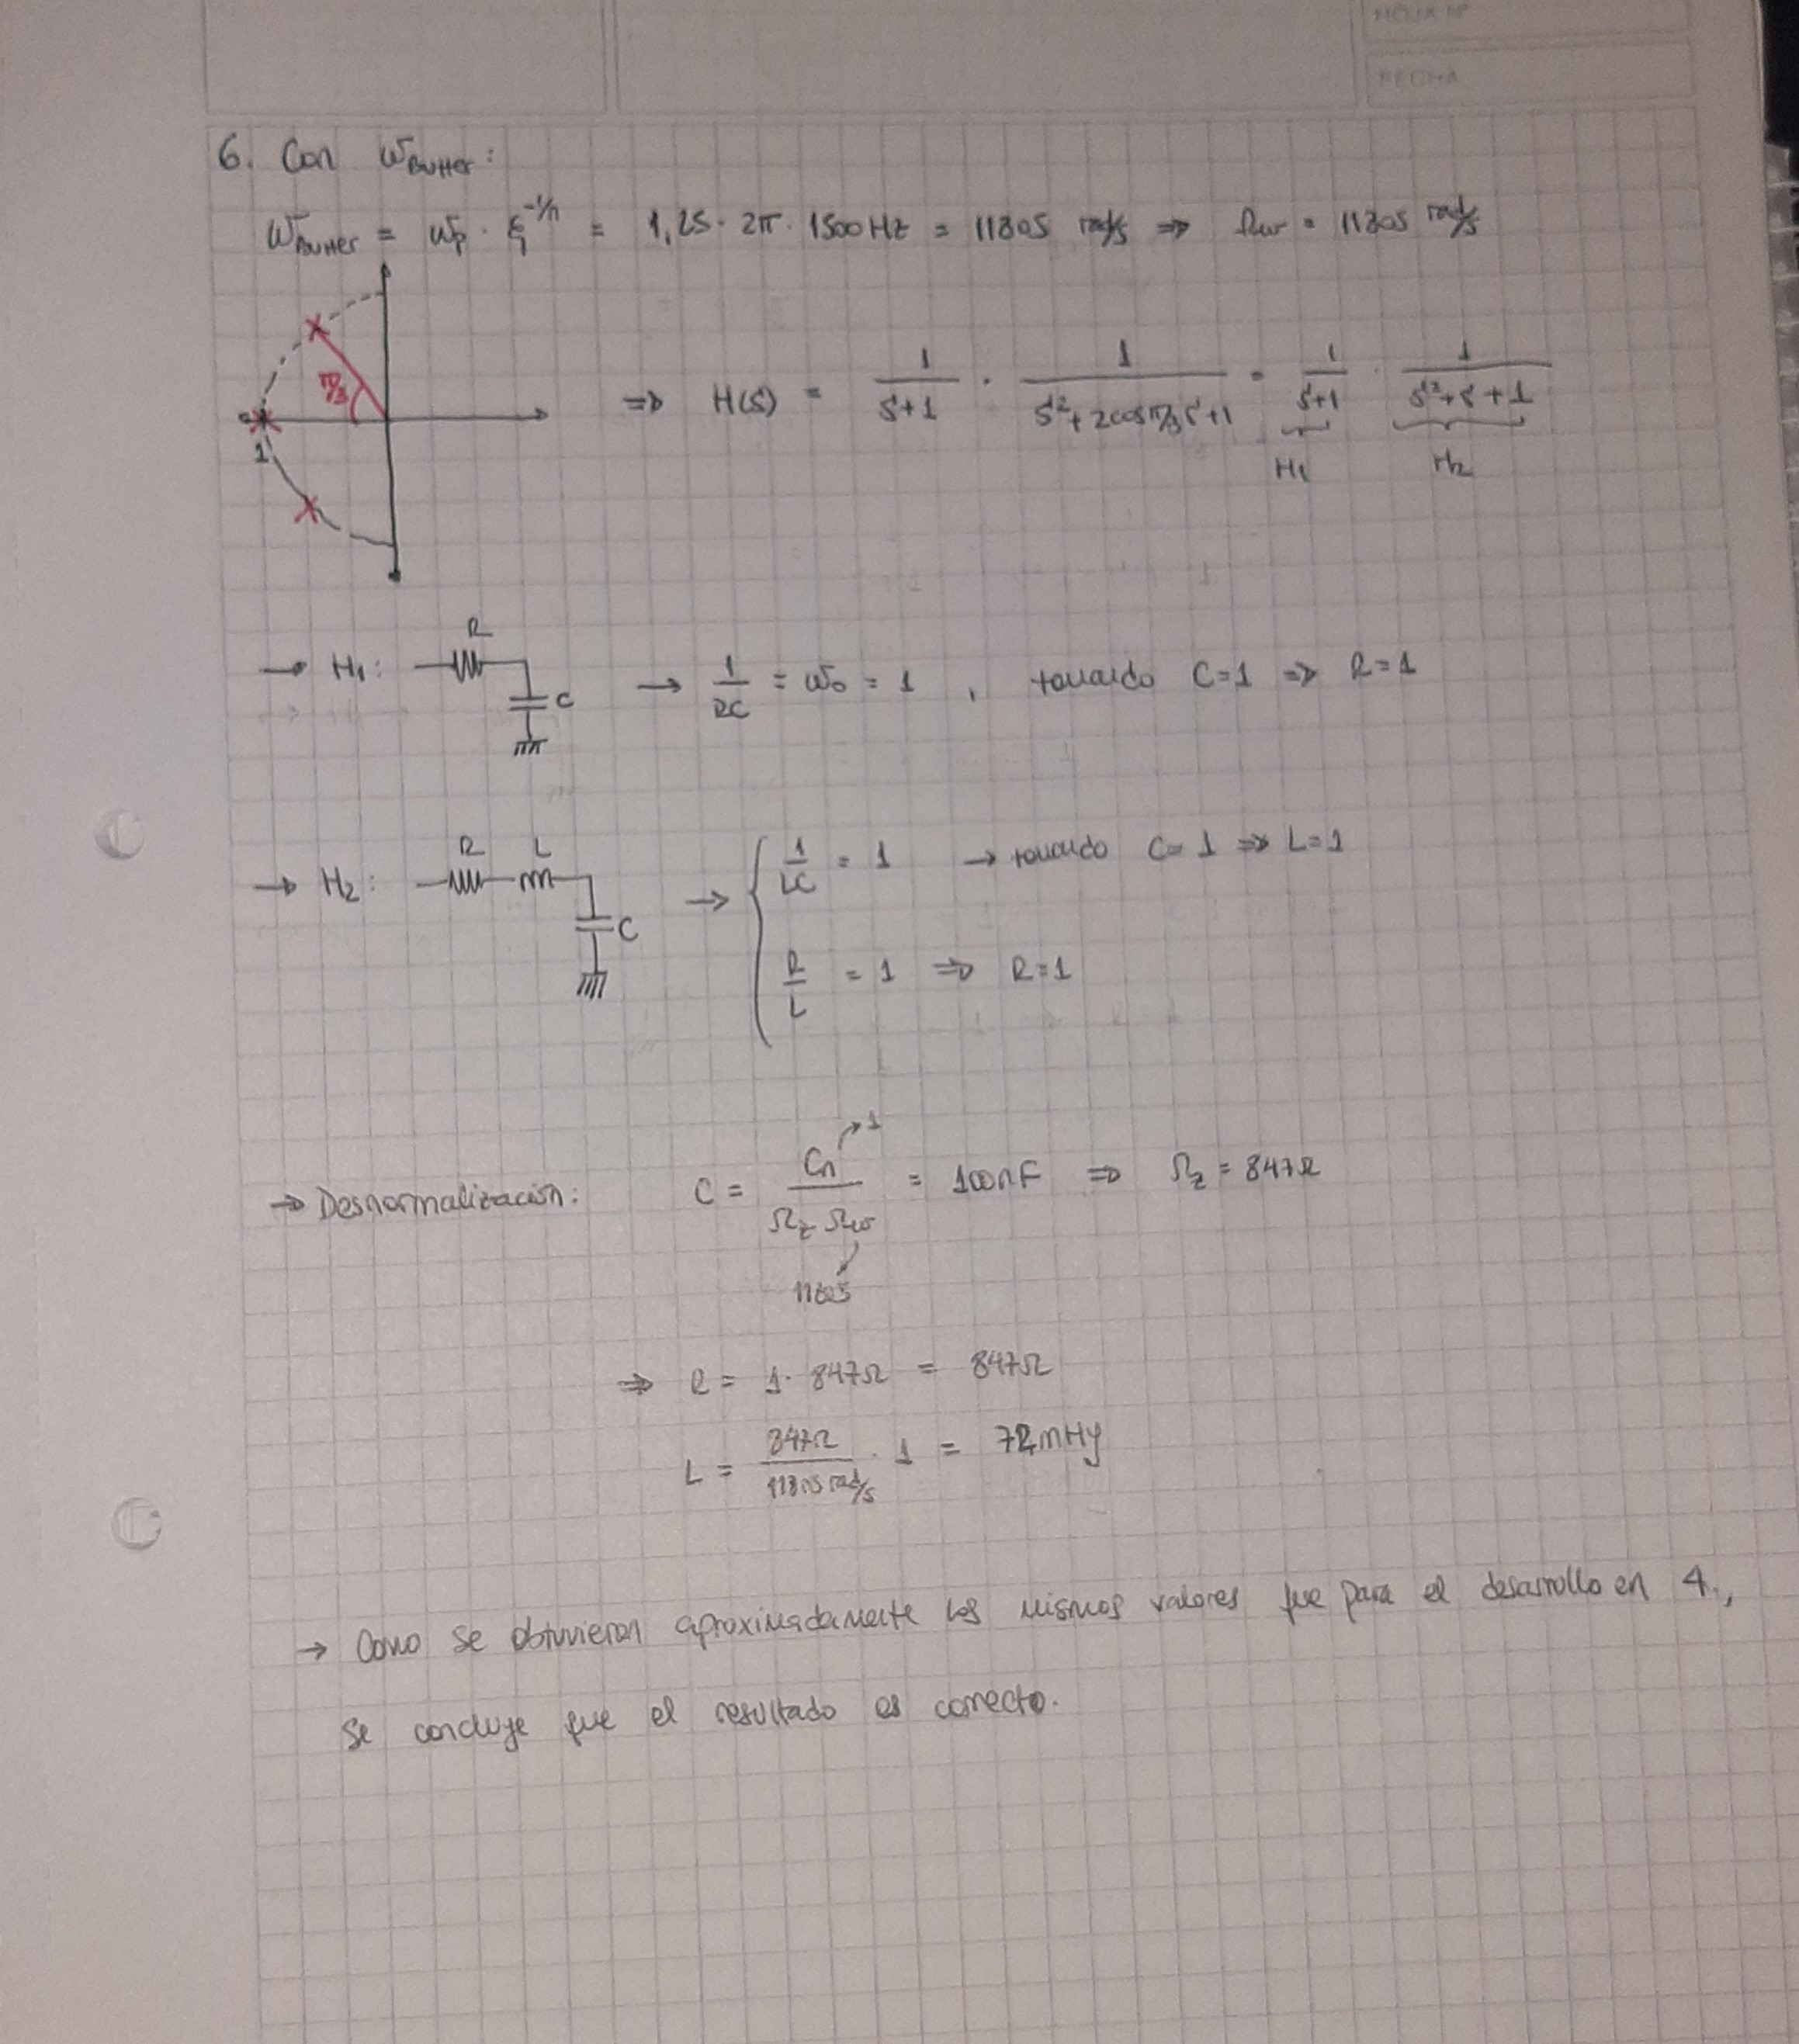 HOJA Nº
FECHA
6. Con ωButter:
ωButter = ωp · ξ^(-1/n) = 1,25 · 2π · 1500Hz = 11805 rad/s ⇒ Ωω = 11805 rad/s
π/3
1
⇒ H(s) = 1/(s+1) · 1/(s²+2cosπ/3 s+1) = 1/(s+1) · 1/(s²+s+1)
H1 H2
→ H1: R C → 1/RC = ω0 = 1 , tomando C=1 ⇒ R=1
→ H2: R L C → { 1/LC = 1 → tomando C=1 ⇒ L=1
R/L = 1 ⇒ R=1
→ Desnormalización: C = Cn/(Ωz Ωω) = 100nF ⇒ Ωz = 847Ω
1
11805
⇒ R = 1 · 847Ω = 847Ω
L = 847Ω/11805 rad/s · 1 = 72mHy
→ Como se obtuvieron aproximadamente los mismos valores que para el desarrollo en 4.,
se concluye que el resultado es correcto.